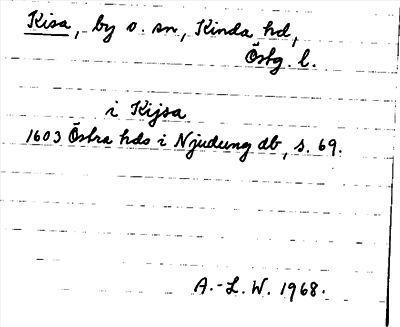 Kisa, by o. sn, Kinda hd,
Östg. l.
i Kijsa
1603 Östra hds i Njudung db, s. 69.
A.-L. W. 1968.